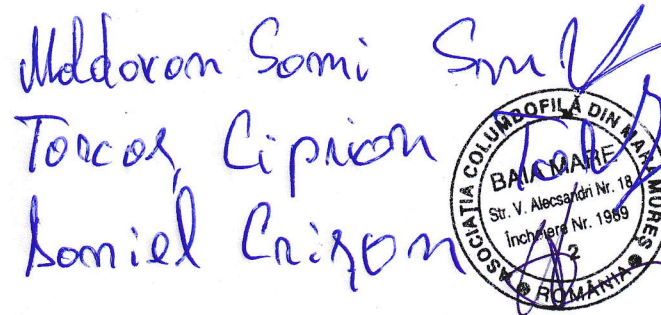 Moldovan Sami
Torcoș Ciprian
Daniel Crișan
ASOCIAȚIA COLUMBOFILĂ DIN MARAMUREȘ
BAIA MARE
Str. V. Alecsandri Nr. 18
Încheiere Nr. 1989
2
ROMÂNIA